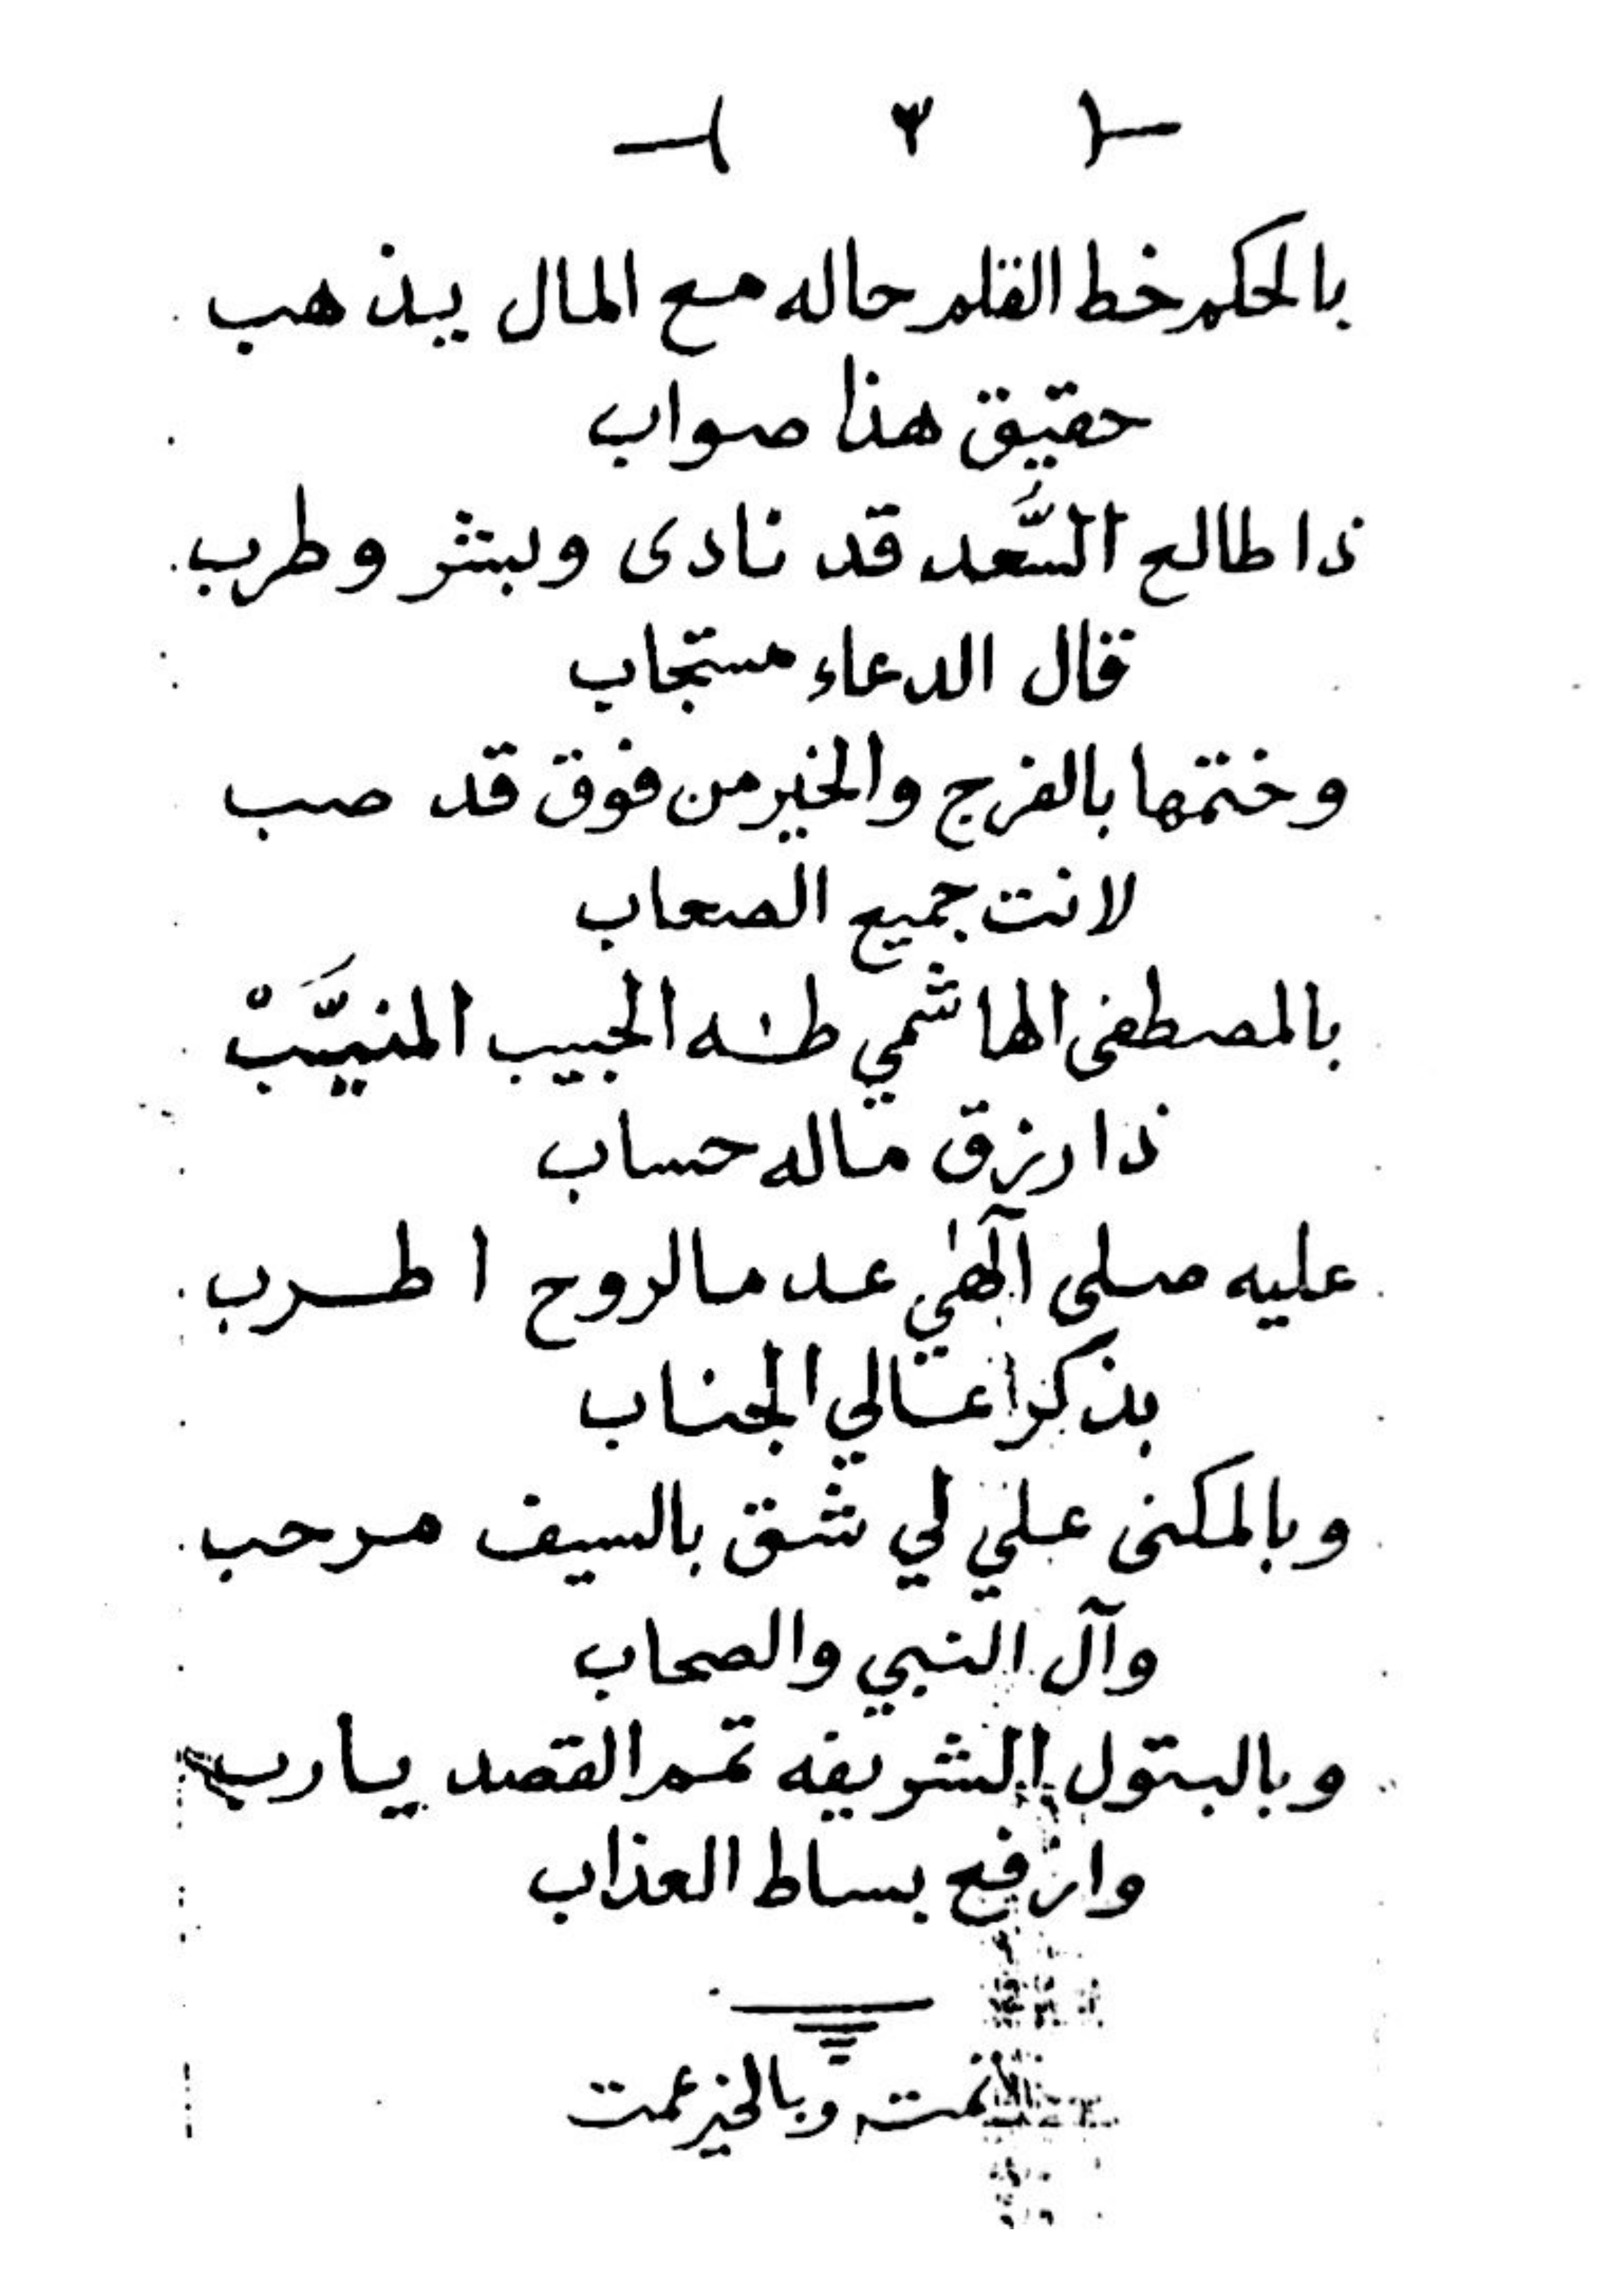 ٣
بالحكم خط القلم حاله مع المال يذهب
حقيق هذا صواب
ذا طالع السَّعد قد نادى وبشر وطرب
قال الدعاء مستجاب
وختمها بالفرج والخير من فوق قد صب
لانت جميع الصعاب
بالمصطفى الهاشمي طٰه الحبيب المنيَّبْ
ذا رزق ماله حساب
عليه صلى آلهٰي عد مالروح اطرب
بذكرا عالي الجناب
وبالمكنى علي لي شق بالسيف مرحب
وآل النبي والصحاب
وبالبتول الشريفه تمم القصد يارب
وارفع بساط العذاب
تمت وبالخير عمت